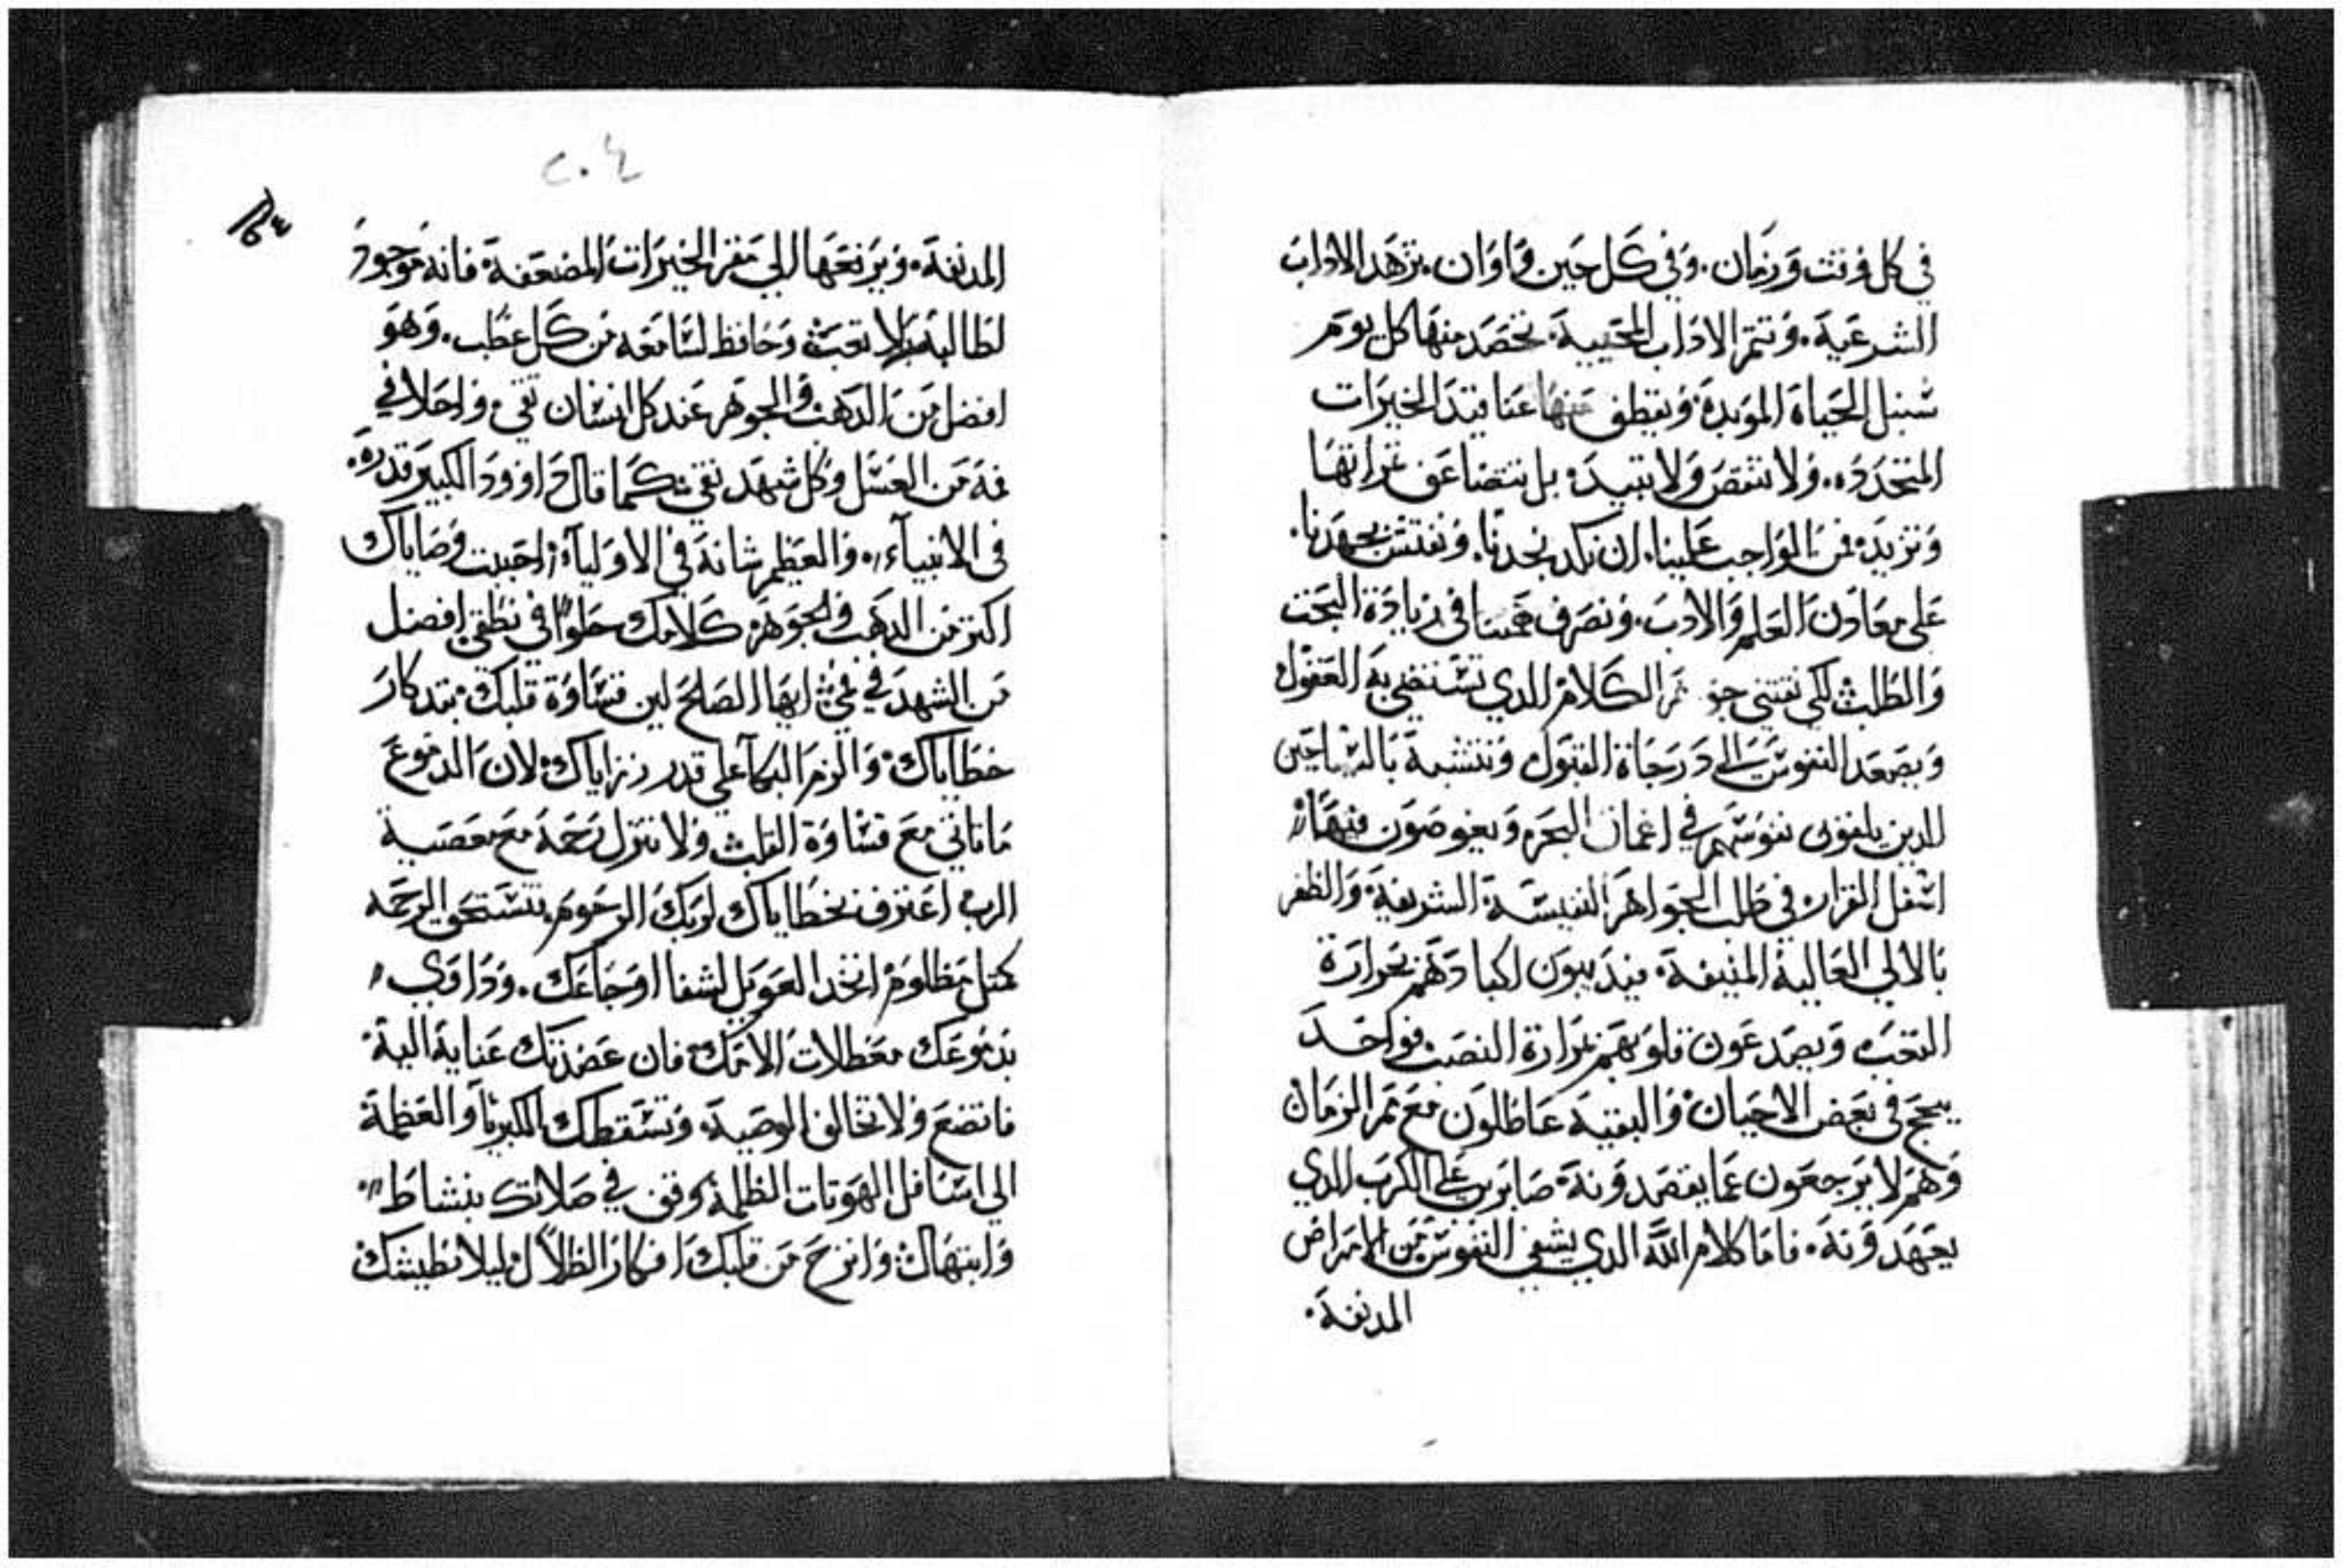 في كل وقت وزمان. وفي كل حين واوان. تزهد الاداب
الشرعية. وتتمر الاداب المحييية. نحصد منها كل يوم
سنبل الحياة المؤبدة ونقطف منها عناقيد الخيرات
المتجدده. ولا تنقص ولا تبيد. بل تتضاعف ثمراتها
وتزيد. فمن الواجب علينا. ان نكد بجدنا. ونفتش بجهدنا.
على معادن العلم والادب. ونصرف همتنا في زيادة البحت
والطلب لكي نقتني الكلام الدي تستضي به العقول
ويصعد النفوس الى درجاة القبول ونتشبه بالساحين
الدين يلقون نفوسهم في اعماق البحر ويغوصون فيها
اسفل القرار في طلب الجواهر النفيسة الشريفة والظفر
بالالي العالية المنيفة. فيدبيون اكبادهم بحرارة
التعب ويصدعون قلوبهم بمرارة النصب فواحد
ينجح في بعض الاحيان والبقية عاطلون مع ممر الزمان
وهم لا يرجعون عما يقصدونه. صابرين على الكرب الدي
يعهدونه. فاما كلام الله الدي يشفي النفوس من الامراض
المدنفة.
٢٠٤
المدنفة. ويرفعها الي مقر الخيرات المضعفة. فانه موجود
لطالبه بلا تعب وحافظ لسامعه من كل عطب. وهو
افضل من الدهب والجوهر عند كل انسان تقي. واحلا في
فمه من العسل وكل شهد نقي. كما قال داوود الكبير قدره.
في الانبياء. والعظيم شانه في الاولياء. احببت وصاياك
اكتر من الدهب والجوهر. كلامك حلوا في نطقي افضل
من الشهد في فمي. ايها الصالح لين قساوة قلبك. بتدكار
خطاياك. والزم البكا على قدر رزاياك. لان الدموع
ما تاتي مع قساوة القلب ولا تنزل رحمة مع معصية
الرب اعترف بخطاياك لربك الرحوم. تستحق الرحمه
كمتل مظلوم. اتخد العويل لشفا اوجاعك. وداوي
بدموعك معطلات الامك. فان عضدتك عناية الية
فاتضع ولا تخالف الوصية. وتسقطك الكبريا والعظمة
الي اسافل الهوتات الظلمة. وقف في صلاتك بنشاط
وابتهال وانزح من قلبك افكار الظلال ليلا تطيشك